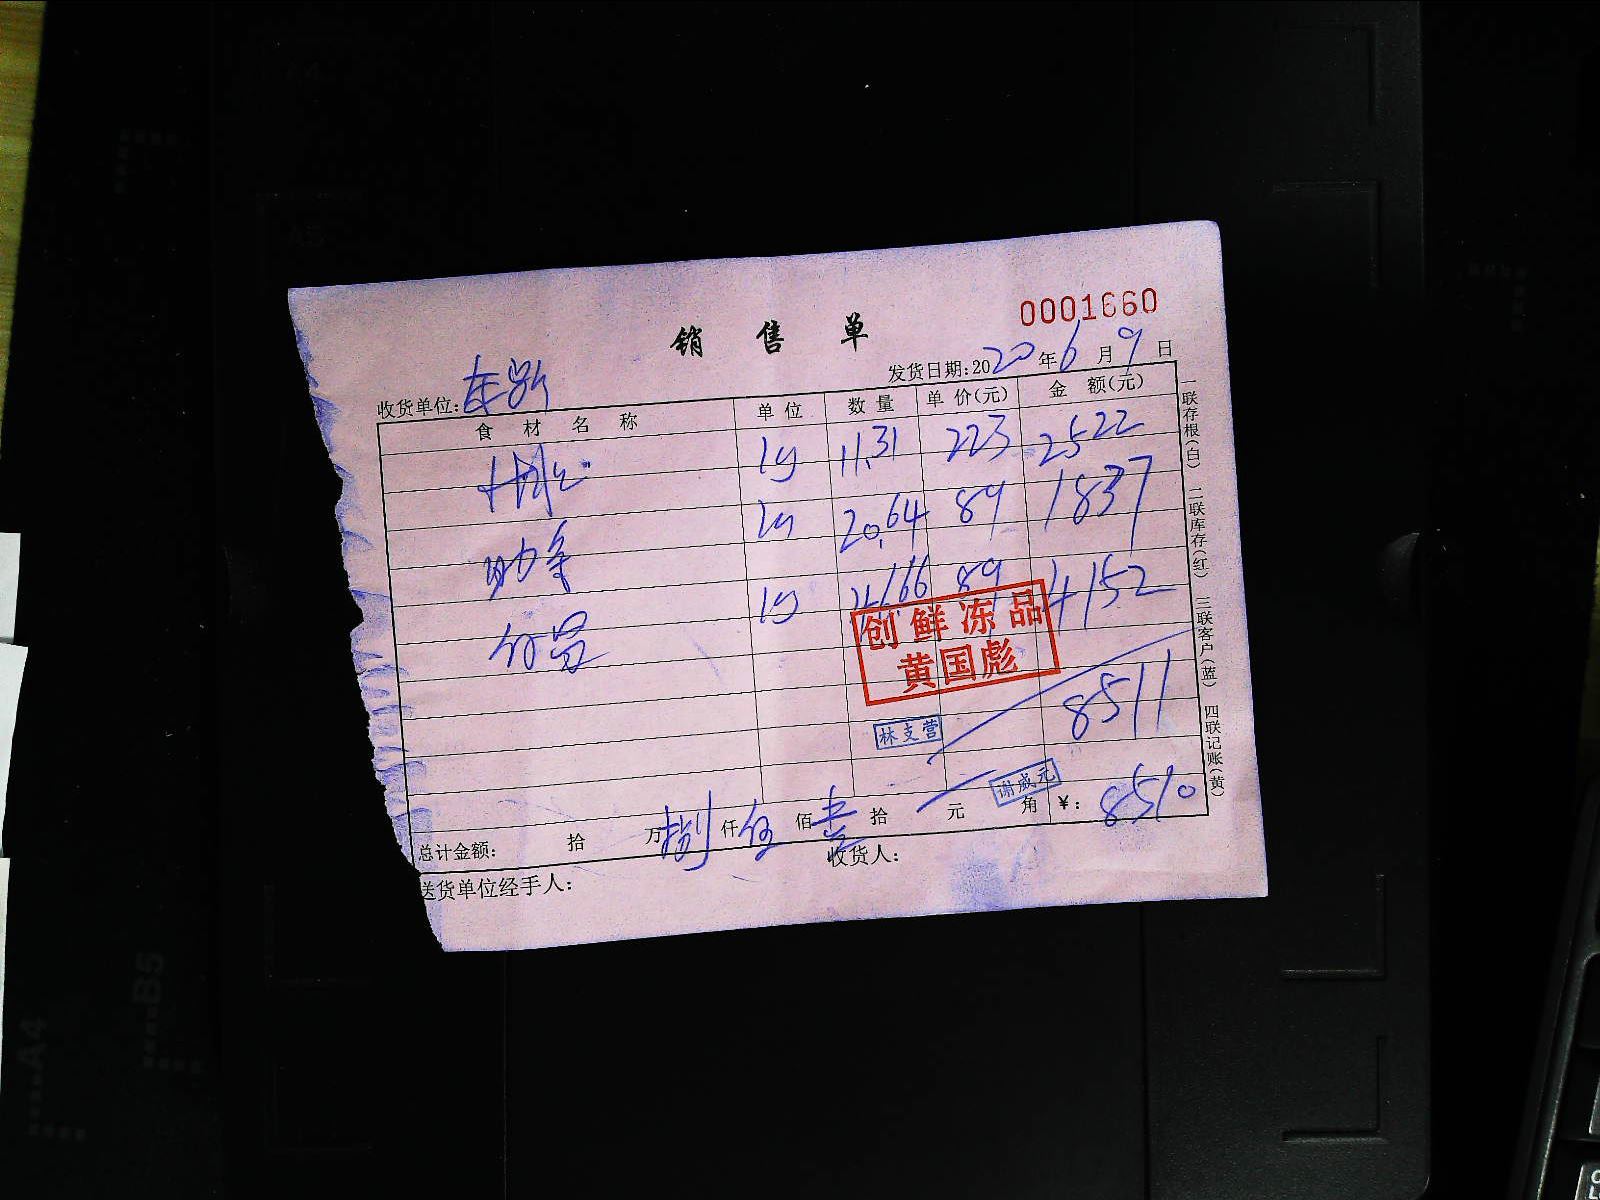 0001660
销售单
发货日期:2020年6月9日
收货单位:
食材名称 单位 数量 单价(元) 金额(元)
11.31 223 2522
20.64 89 1837
89 4152
创鲜冻品
黄国彪
8511
林支营
谢威元
总计金额: 拾 万捌仟伍佰壹拾 元 角 ¥: 8510
送货单位经手人: 收货人:
一联存根(白) 二联库存(红) 三联客户(蓝) 四联记账(黄)
A4
B5